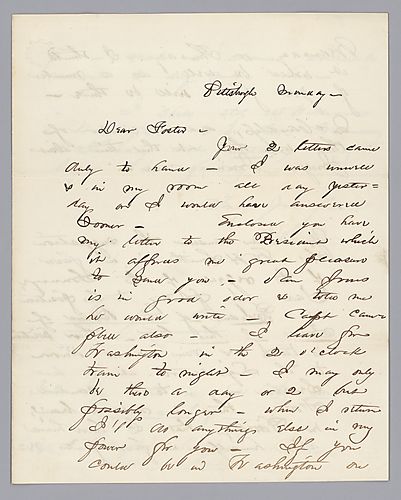 Pittsburgh Monday -
Dear Foster -
Your 2 letters came
duly to hand - I was unwell
& in my room all day yester=
day or I would have answered
sooner - Enclosed you have
my letter to the President which
it affords me great pleasure
to send you -
is in good odor & told me
he would write - Capt
also - I leave for
Washington in the 2 o'clock
train to night - I may only
be there a day or 2 but
possibly longer - when I return
I'll do anything else in my
power for you - If you
could be in Washington on